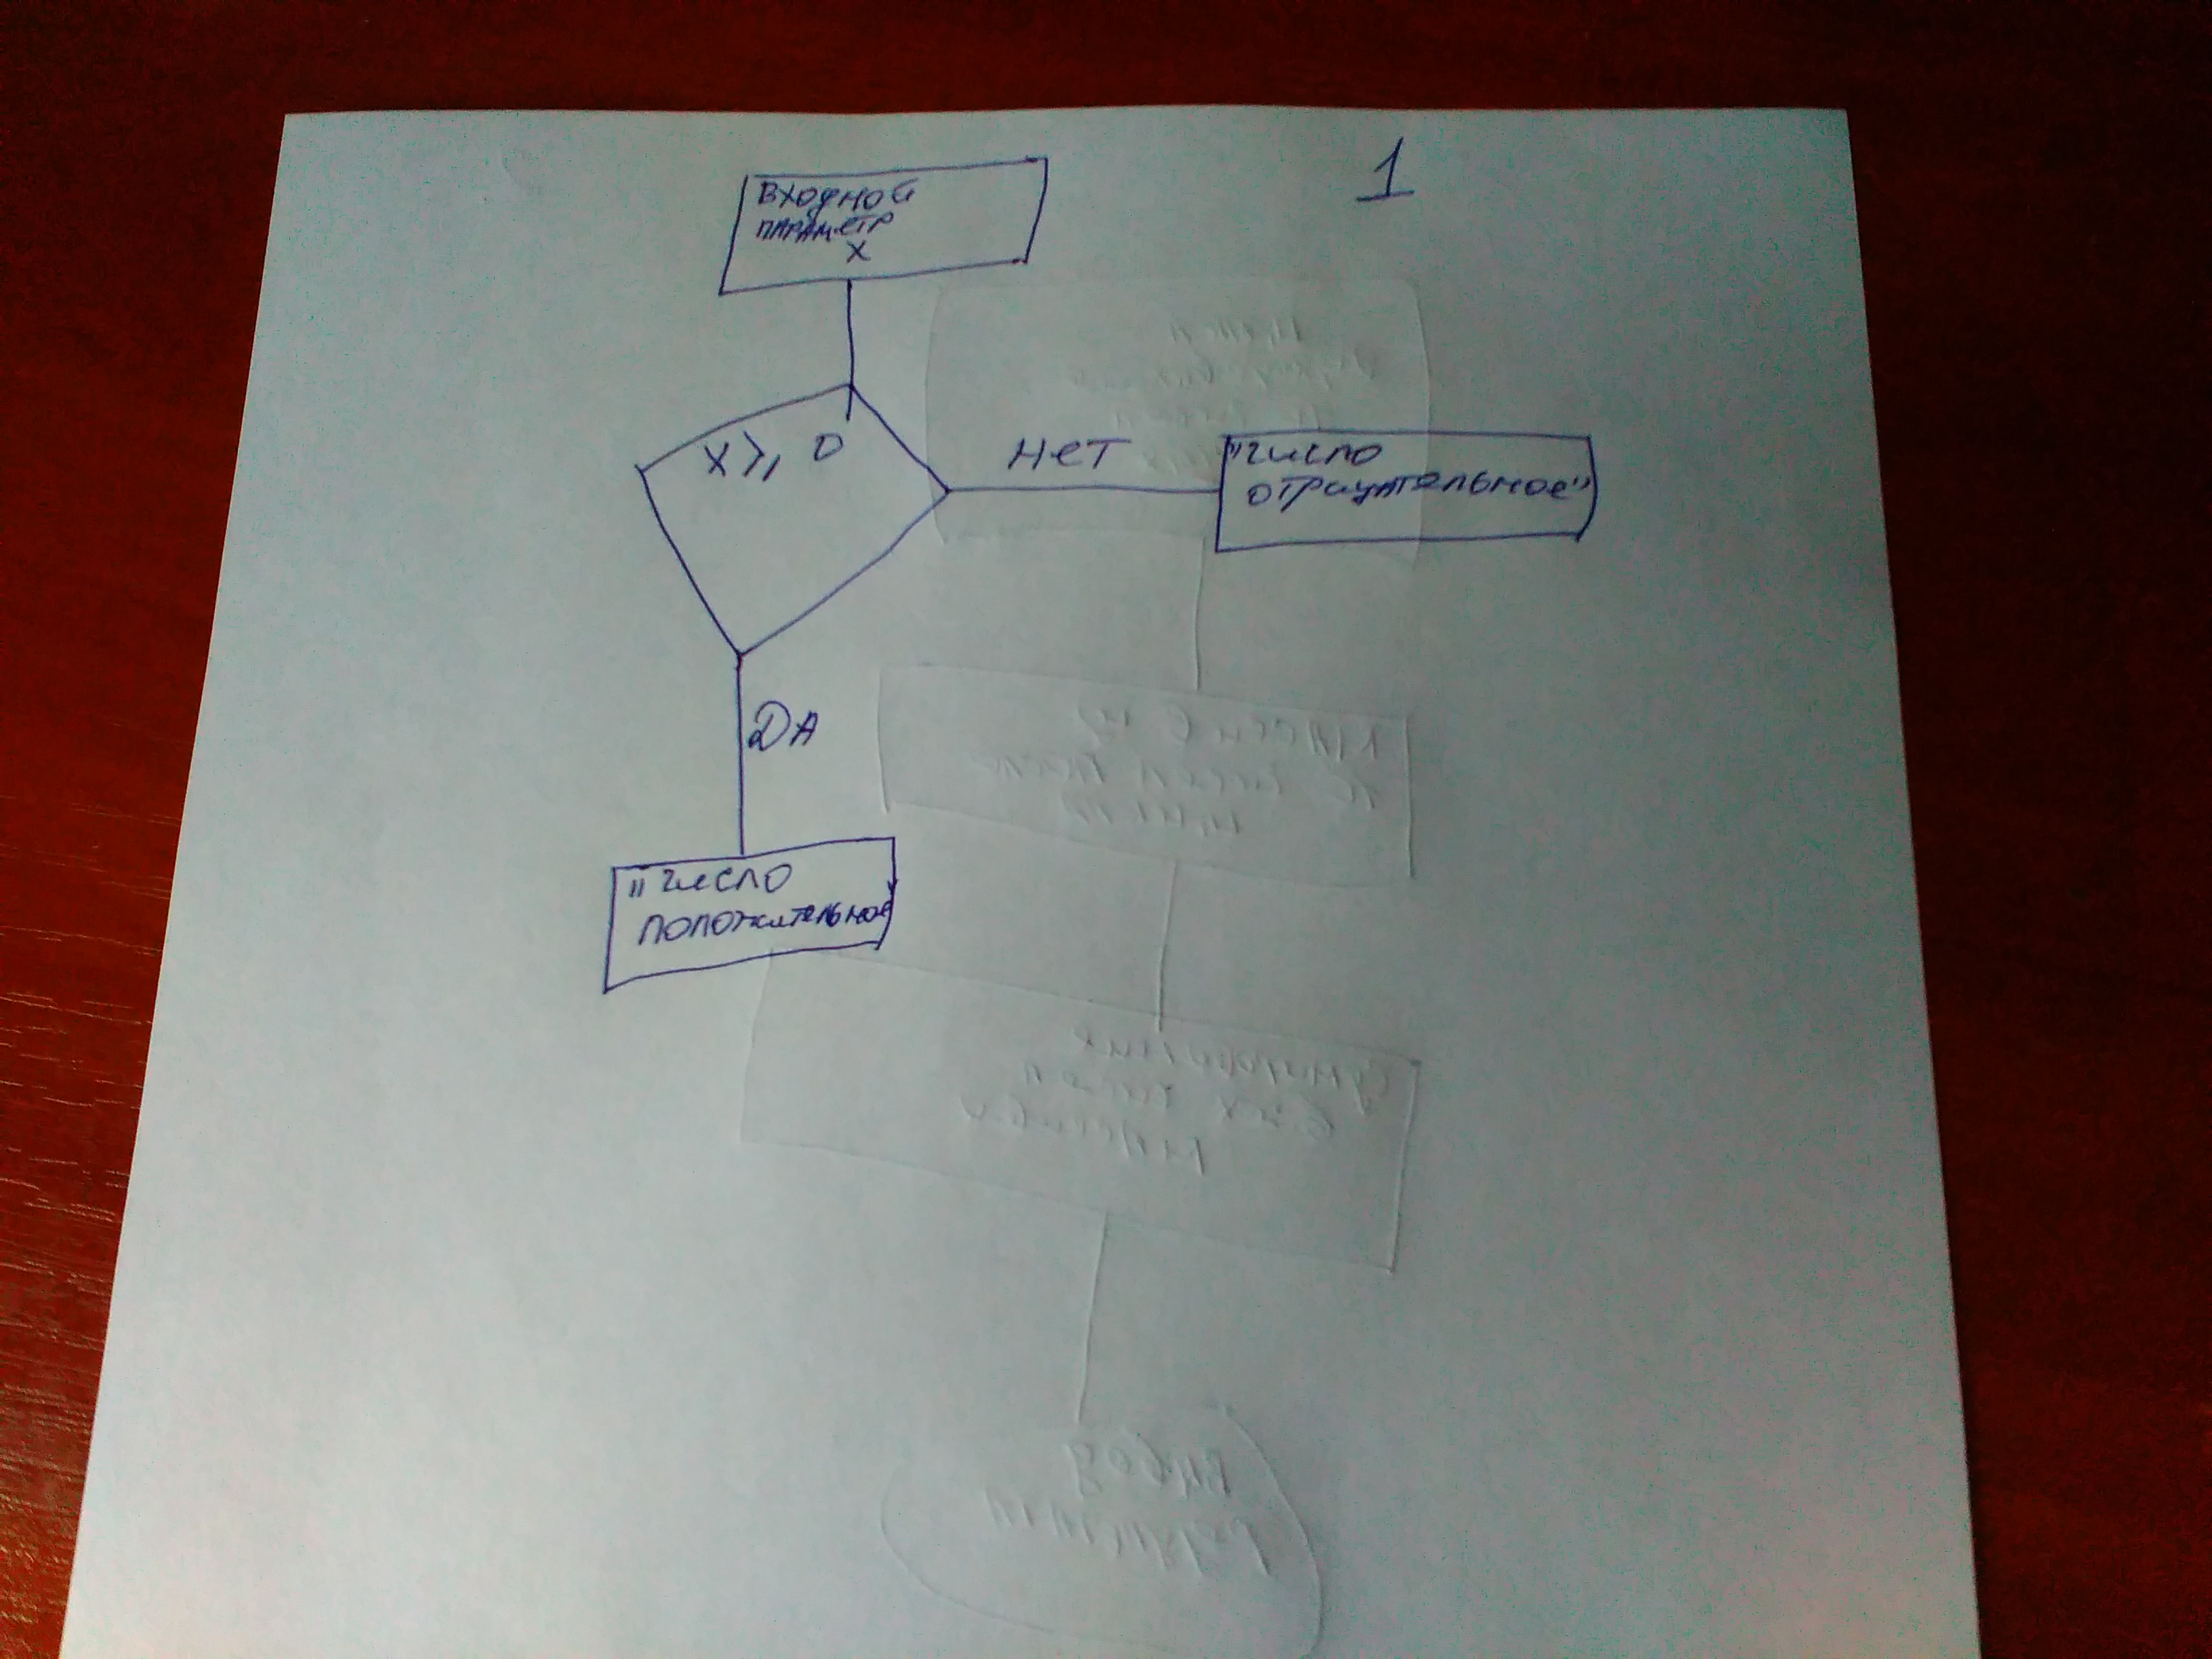 1
ВХОДНОЙ
ПАРАМЕТР
X
X ≥ 0
НЕТ
"ЧИСЛО
ОТРИЦАТЕЛЬНОЕ"
ДА
"ЧИСЛО
ПОЛОЖИТЕЛЬНОЕ